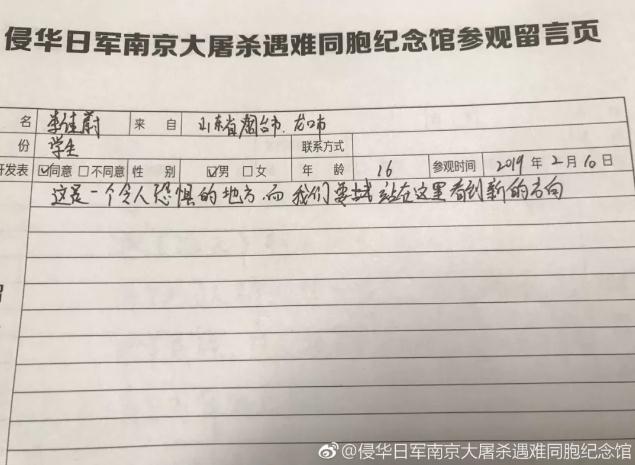 侵华日军南京大屠杀遇难同胞纪念馆参观留言页
名 李佳蔚 来 自 山东省烟台市、龙口市
份 学生 联系方式
开发表 ☑同意 □不同意 性 别 ☑男 □女 年 龄 16 参观时间 2019 年 2 月 10 日
这是一个令人恐惧的地方,而我们要站在这里看到新的方向
@侵华日军南京大屠杀遇难同胞纪念馆